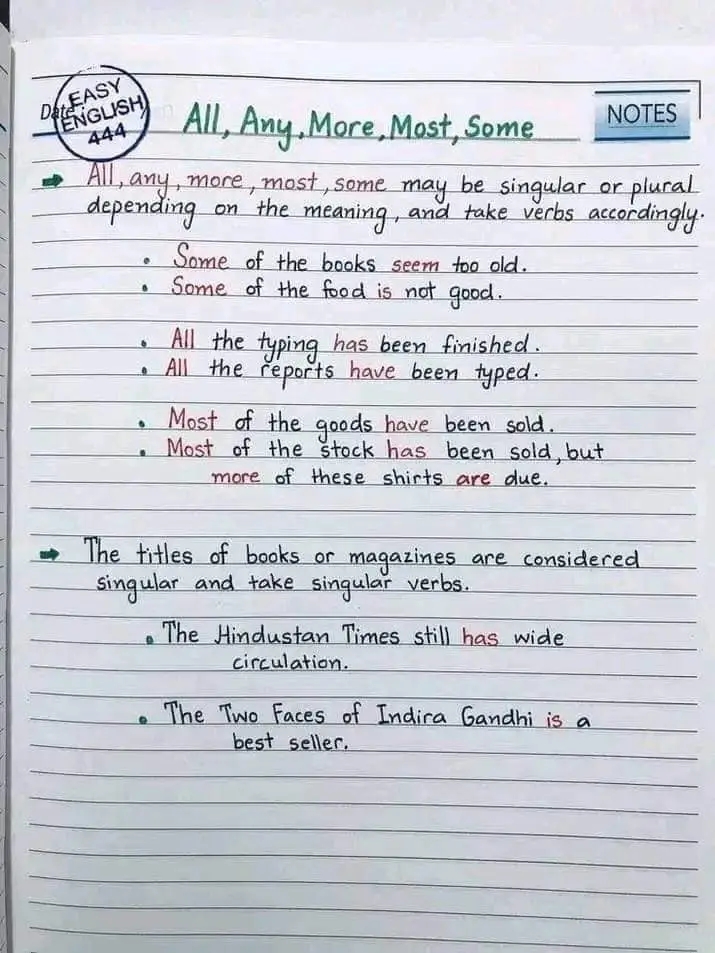 EASY
Date:
ENGLISH
444
All, Any, More, Most, Some
NOTES
All, any, more, most, some may be singular or plural
depending on the meaning, and take verbs accordingly.
• Some of the books seem too old.
• Some of the food is not good.
• All the typing has been finished.
• All the reports have been typed.
• Most of the goods have been sold.
• Most of the stock has been sold, but
more of these shirts are due.
The titles of books or magazines are considered
singular and take singular verbs.
• The Hindustan Times still has wide
circulation.
• The Two Faces of Indira Gandhi is a
best seller.